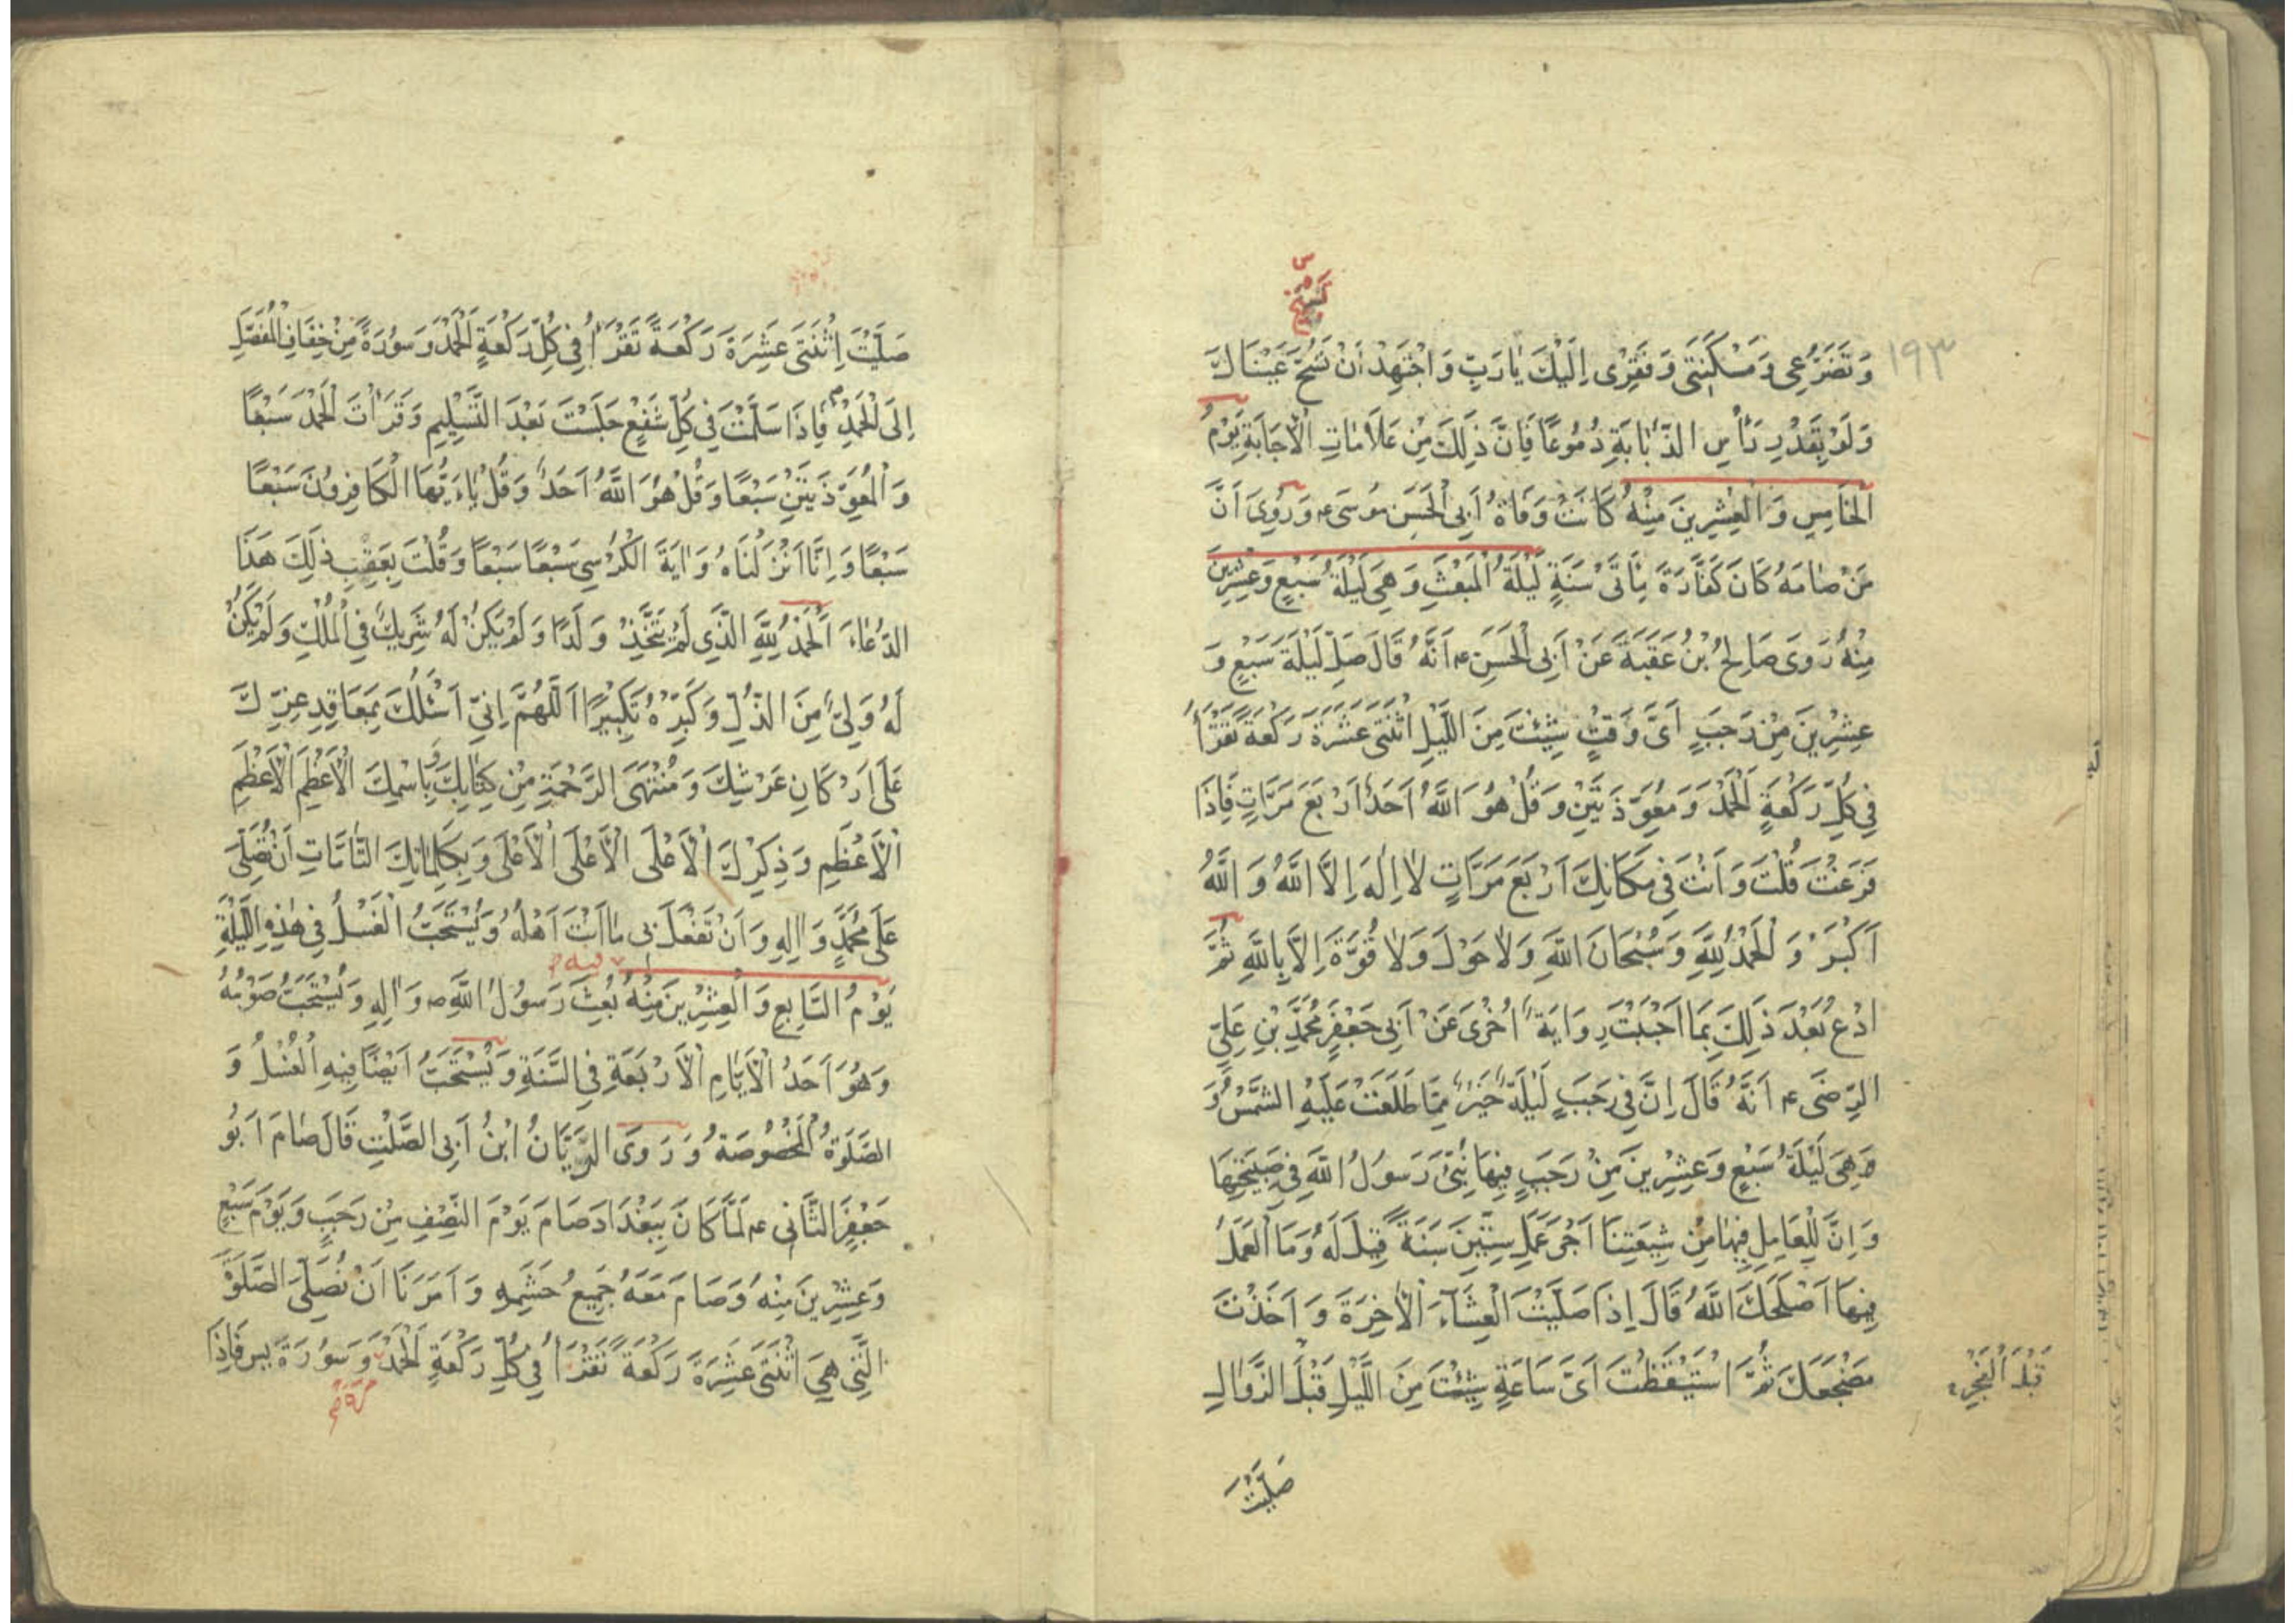 ١٩٣
وَتَضَرُّعِى وَمَسْكَنَتِى وَفَقْرِى اِلَيْكَ يَا رَبِّ وَاجْتَهِدْ اَنْ تَسُحَّ عَيْنَاكَ
وَلَوْ بِقَدْرِ رَأْسِ الذُّبَابَةِ دُمُوعًا فَاِنَّ ذٰلِكَ مِنْ عَلَامَاتِ الْاِجَابَةِ يَوْمُ
الْخَامِسِ وَالْعِشْرِينَ مِنْهُ كَانَتْ وَفَاةُ اَبِى الْحَسَنِ مُوسَى ع وَرُوِىَ اَنَّ
مَنْ صَامَهُ كَانَ كَفَّارَةَ مِأَتَىْ سَنَةٍ لَيْلَةُ الْمَبْعَثِ وَهِىَ لَيْلَةُ سَبْعٍ وَعِشْرِينَ
مِنْهُ رَوَى صَالِحُ بْنُ عَقَبَةَ عَنْ اَبِى الْحَسَنِ ع اَنَّهُ قَالَ صَلِّ لَيْلَةَ سَبْعٍ وَ
عِشْرِينَ مِنْ رَجَبٍ اَىَّ وَقْتٍ شِئْتَ مِنَ اللَّيْلِ اثْنَتَى عَشْرَةَ رَكْعَةً تَقْرَأُ
فِى كُلِّ رَكْعَةٍ اَلْحَمْدَ وَمُعَوِّذَتَيْنِ وَقُلْ هُوَ اللّٰهُ اَحَدٌ اَرْبَعَ مَرَّاتٍ فَاِذَا
فَرَغْتَ قُلْتَ وَاَنْتَ فِى مَكَانِكَ اَرْبَعَ مَرَّاتٍ لَا اِلٰهَ اِلَّا اللّٰهُ وَاللّٰهُ
اَكْبَرُ وَالْحَمْدُ لِلّٰهِ وَسُبْحَانَ اللّٰهِ وَلَا حَوْلَ وَلَا قُوَّةَ اِلَّا بِاللّٰهِ ثُمَّ
ادْعُ بَعْدَ ذٰلِكَ بِمَا اَحْبَبْتَ رِوَايَةٌ اُخْرَى عَنْ اَبِى جَعْفَرٍ مُحَمَّدِ بْنِ عَلِىٍّ
الرِّضَى ع اَنَّهُ قَالَ اِنَّ فِى رَجَبٍ لَيْلَةً خَيْرٌ مِمَّا طَلَعَتْ عَلَيْهِ الشَّمْسُ وَ
هِىَ لَيْلَةُ سَبْعٍ وَعِشْرِينَ مِنْ رَجَبٍ فِيهَا نُبِّىَ رَسُولُ اللّٰهِ فِى صَبِيحَتِهَا
وَاِنَّ لِلْعَامِلِ فِيهَا مِنْ شِيعَتِنَا اَجْرَ عَمَلِ سِتِّينَ سَنَةً قِيلَ لَهُ وَمَا الْعَمَلُ
فِيهَا اَصْلَحَكَ اللّٰهُ قَالَ اِذَا صَلَّيْتَ الْعِشَاءَ الْاٰخِرَةَ وَاَخَذْتَ
مَضْجَعَكَ ثُمَّ اسْتَيْقَظْتَ اَىَّ سَاعَةٍ شِئْتَ مِنَ اللَّيْلِ قَبْلَ الزَّوَالِ
قَبْلَ الْفَجْرِ
صَلَّيْتَ
صَلَّيْتَ اِثْنَتَى عَشِرَةَ رَكْعَةً تَقْرَأُ فِى كُلِّ رَكْعَةٍ اَلْحَمْدَ وَسُورَةً مِنْ خِفَافِ الْمُفَصَّلِ
اِلَى الْحَمْدِ فَاِذَا سَلَّمْتَ فِى كُلِّ شَفْعٍ جَلَسْتَ بَعْدَ التَّسْلِيمِ وَقَرَأْتَ الْحَمْدَ سَبْعًا
وَالْمُعَوِّذَتَيْنِ سَبْعًا وَقُلْ هُوَ اللّٰهُ اَحَدٌ وَقُلْ يَاءَيُّهَا الْكَافِرُونَ سَبْعًا
سَبْعًا وَاِنَّا اَنْزَلْنَاهُ وَاٰيَةَ الْكُرْسِىِّ سَبْعًا سَبْعًا وَقُلْتَ بِعَقِبِ ذٰلِكَ هَذَا
الدُّعَاءَ اَلْحَمْدُ لِلّٰهِ الَّذِى لَمْ يَتَّخِذْ وَلَدًا وَلَمْ يَكُنْ لَهُ شَرِيكٌ فِى الْمُلْكِ وَلَمْ يَكُنْ
لَهُ وَلِىٌّ مِنَ الذُّلِّ وَكَبِّرْهُ تَكْبِيرًا اَللّٰهُمَّ اِنِّى اَسْئَلُكَ بِمَعَاقِدِ عِزِّكَ
عَلَى اَرْكَانِ عَرْشِكَ وَمُنْتَهَى الرَّحْمَةِ مِنْ كِتَابِكَ وَبِاسْمِكَ الْاَعْظَمِ الْاَعْظَمِ
الْاَعْظَمِ وَذِكْرِكَ الْاَعْلَى الْاَعْلَى الْاَعْلَى وَبِكَلِمَاتِكَ التَّامَّاتِ اَنْ تُصَلِّىَ
عَلَى مُحَمَّدٍ وَاٰلِهِ وَاَنْ تَفْعَلَ بِى مَا اَنْتَ اَهْلُهُ وَيُسْتَحَبُّ الْغُسْلُ فِى هٰذِهِ اللَّيْلَةِ
يَوْمُ السَّابِعِ وَالْعِشْرِينَ مِنْهُ بُعِثَ رَسُولُ اللّٰهِ ص وَاٰلِهِ وَيُسْتَحَبُّ صَوْمُهُ
وَهُوَ اَحَدُ الْاَيَّامِ الْاَرْبَعَةِ فِى السَّنَةِ وَيُسْتَحَبُّ اَيْضًا فِيهِ الْغُسْلُ وَ
الصَّلَوةُ الْمَخْصُوصَةُ وَرَوَى الرَّيَّانُ ابْنُ اَبِى الصَّلْتِ قَالَ صَامَ اَبُو
جَعْفَرِ الثَّانِى ع لَمَّا كَانَ بِبَغْدَادَ صَامَ يَوْمَ النِّصْفِ مِنْ رَجَبٍ وَيَوْمَ سَبْعٍ
وَعِشْرِينَ مِنْهُ وَصَامَ مَعَهُ جَمِيعُ حَشَمِهِ وَاَمَرَنَا اَنْ نُصَلِّىَ الصَّلَوةَ
الَّتِى هِىَ اثْنَتَى عَشِرَةَ رَكْعَةً تَقْرَأُ فِى كُلِّ رَكْعَةٍ اَلْحَمْدَ وَسُورَةَ يس فَاِذَا